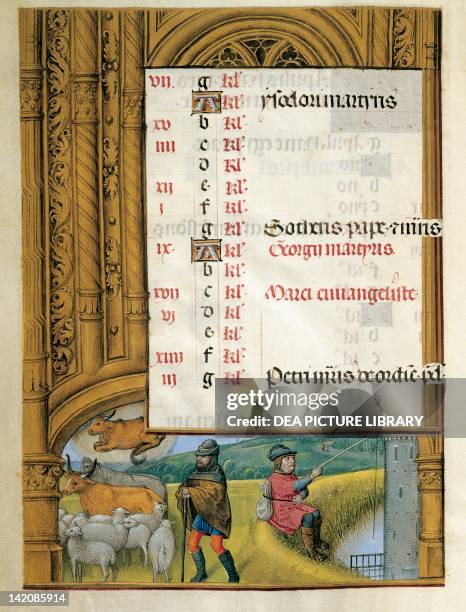 VII. g kl'
A kl' ysodori martyris
XV b kl'
IIII c kl'
D kl'
XII e kl'
I f kl'
g kl' Sothens pape
IX A kl' Georgii martyris.
b kl'
XVII c kl' Marci euuangeliste
VI D kl'
e kl'
XIIII f kl'
III g kl' Petri mris de ordie pd.
gettyimages
DEA PICTURE LIBRARY
142085914